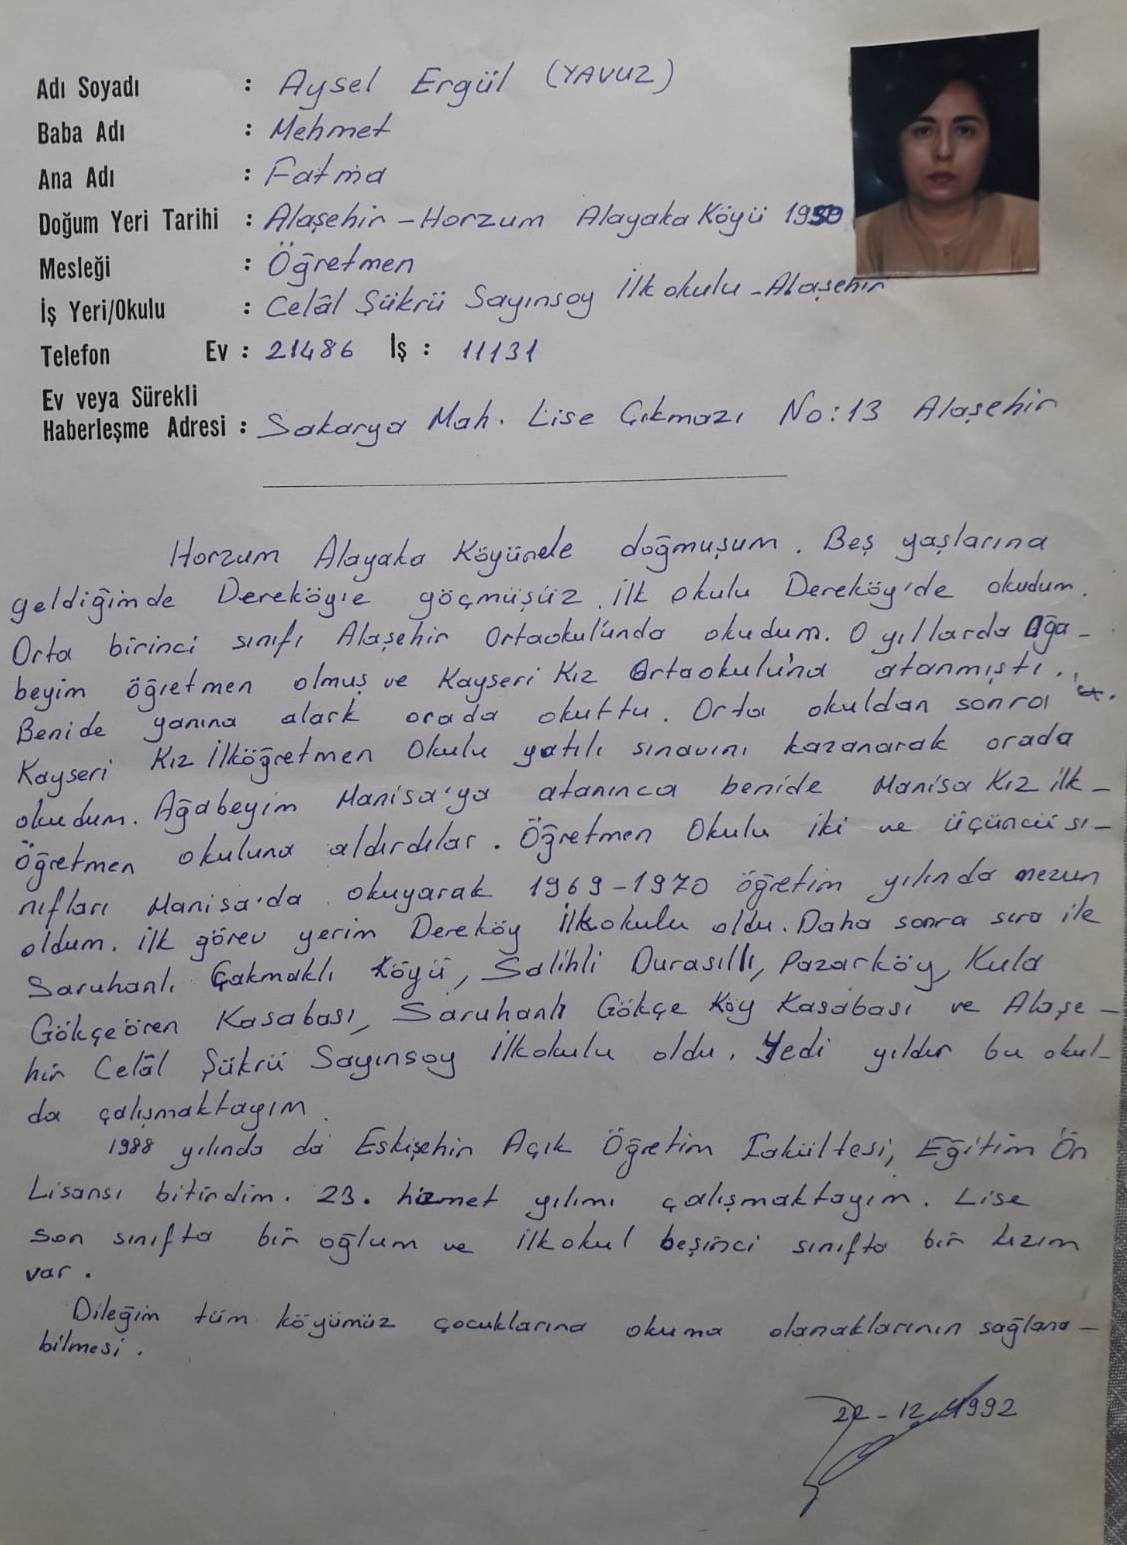 Adı Soyadı : Aysel Ergül (YAVUZ)
Baba Adı : Mehmet
Ana Adı : Fatma
Doğum Yeri Tarihi : Alaşehir - Horzum Alayaka Köyü 1950
Mesleği : Öğretmen
İş Yeri/Okulu : Celâl Şükrü Sayınsoy İlkokulu - Alaşehir
Telefon Ev : 21486 İş : 11131
Ev veya Sürekli
Haberleşme Adresi : Sakarya Mah. Lise Çıkmazı No:13 Alaşehir
Horzum Alayaka Köyünde doğmuşum. Beş yaşlarına
geldiğimde Dereköy'e göçmüşüz. İlk okulu Dereköy'de okudum.
Orta birinci sınıfı Alaşehir Ortaokulunda okudum. O yıllarda Ağa-
beyim öğretmen olmuş ve Kayseri Kız Ortaokulu'na atanmıştı.
Benide yanına alark orada okuttu. Orta okuldan sonra
Kayseri Kız İlköğretmen Okulu yatılı sınavını kazanarak orada
okudum. Ağabeyim Manisa'ya atanınca benide Manisa Kız İlk-
Öğretmen okuluna aldırdılar. Öğretmen Okulu iki ve üçüncü sı-
nıfları Manisa'da okuyarak 1969-1970 öğretim yılında mezun
oldum. İlk görev yerim Dereköy İlkokulu oldu. Daha sonra sıra ile
Saruhanlı Çakmaklı Köyü, Salihli Durasıllı, Pazarköy, Kula
Gökçeören Kasabası, Saruhanlı Gökçe Köy Kasabası ve Alaşe-
hir Celâl Şükrü Sayınsoy İlkokulu oldu. Yedi yıldır bu okul-
da çalışmaktayım.
1988 yılında da Eskişehir Açık Öğretim Fakültesi, Eğitim Ön
Lisansı bitirdim. 23. hizmet yılımı çalışmaktayım. Lise
son sınıfta bir oğlum ve ilkokul beşinci sınıfta bir kızım
var.
Dileğim tüm köyümüz çocuklarına okuma olanaklarının sağlana-
bilmesi.
22-12-1992